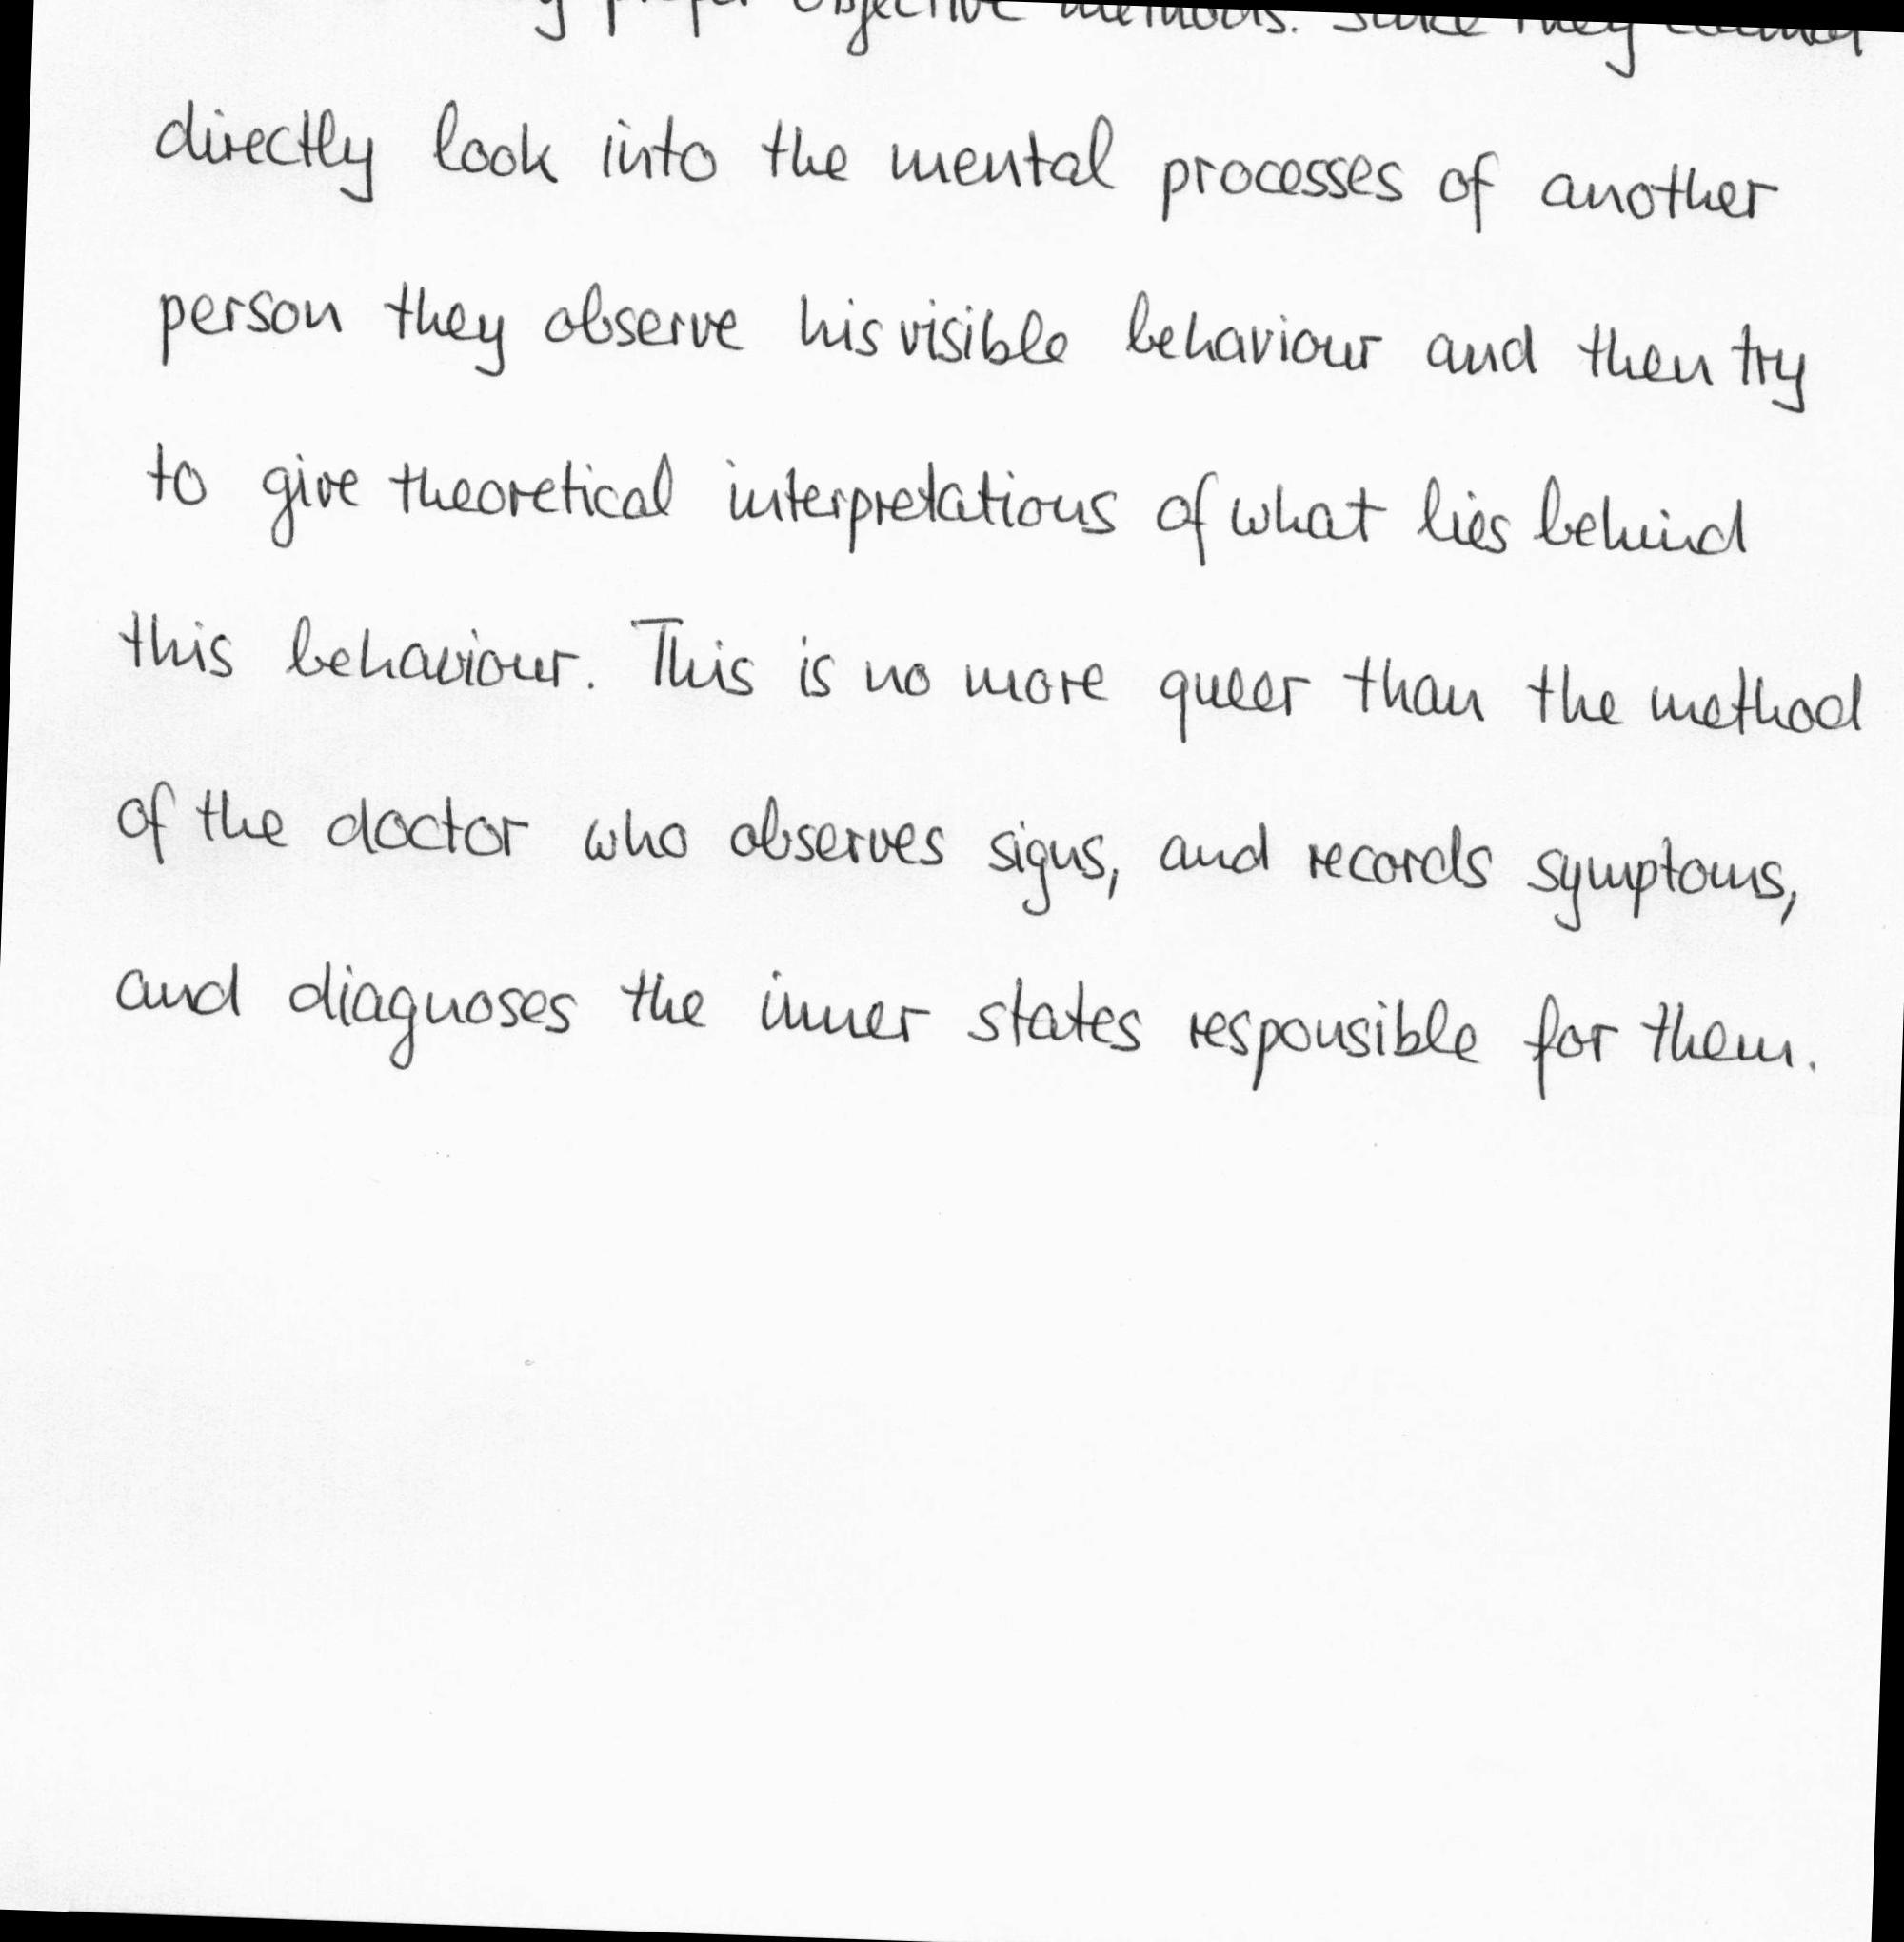 prefer objective methods. Since they cannot
directly look into the mental processes of another
person they observe his visible behaviour and then try
to give theoretical interpretations of what lies behind
this behaviour. This is no more queer than the method
of the doctor who observes signs, and records symptoms,
and diagnoses the inner states responsible for them.